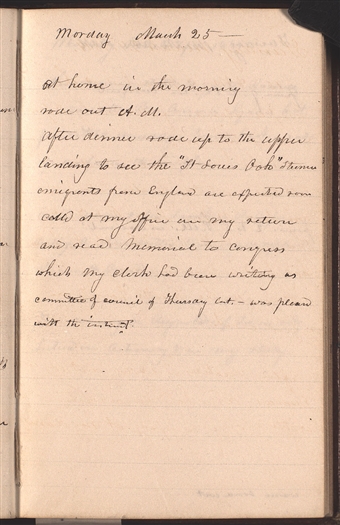 Monday March 25—
At home in the morning
rode out A. M.
After dinner rode up to the upper
landing to see the "St Louis Oak" Steamer
emigrants from England are expected now
calld at my office on my return
and read Memorial to Congress
which my clerk had been writing as
committee of council of Thursday last. – was pleased
with the